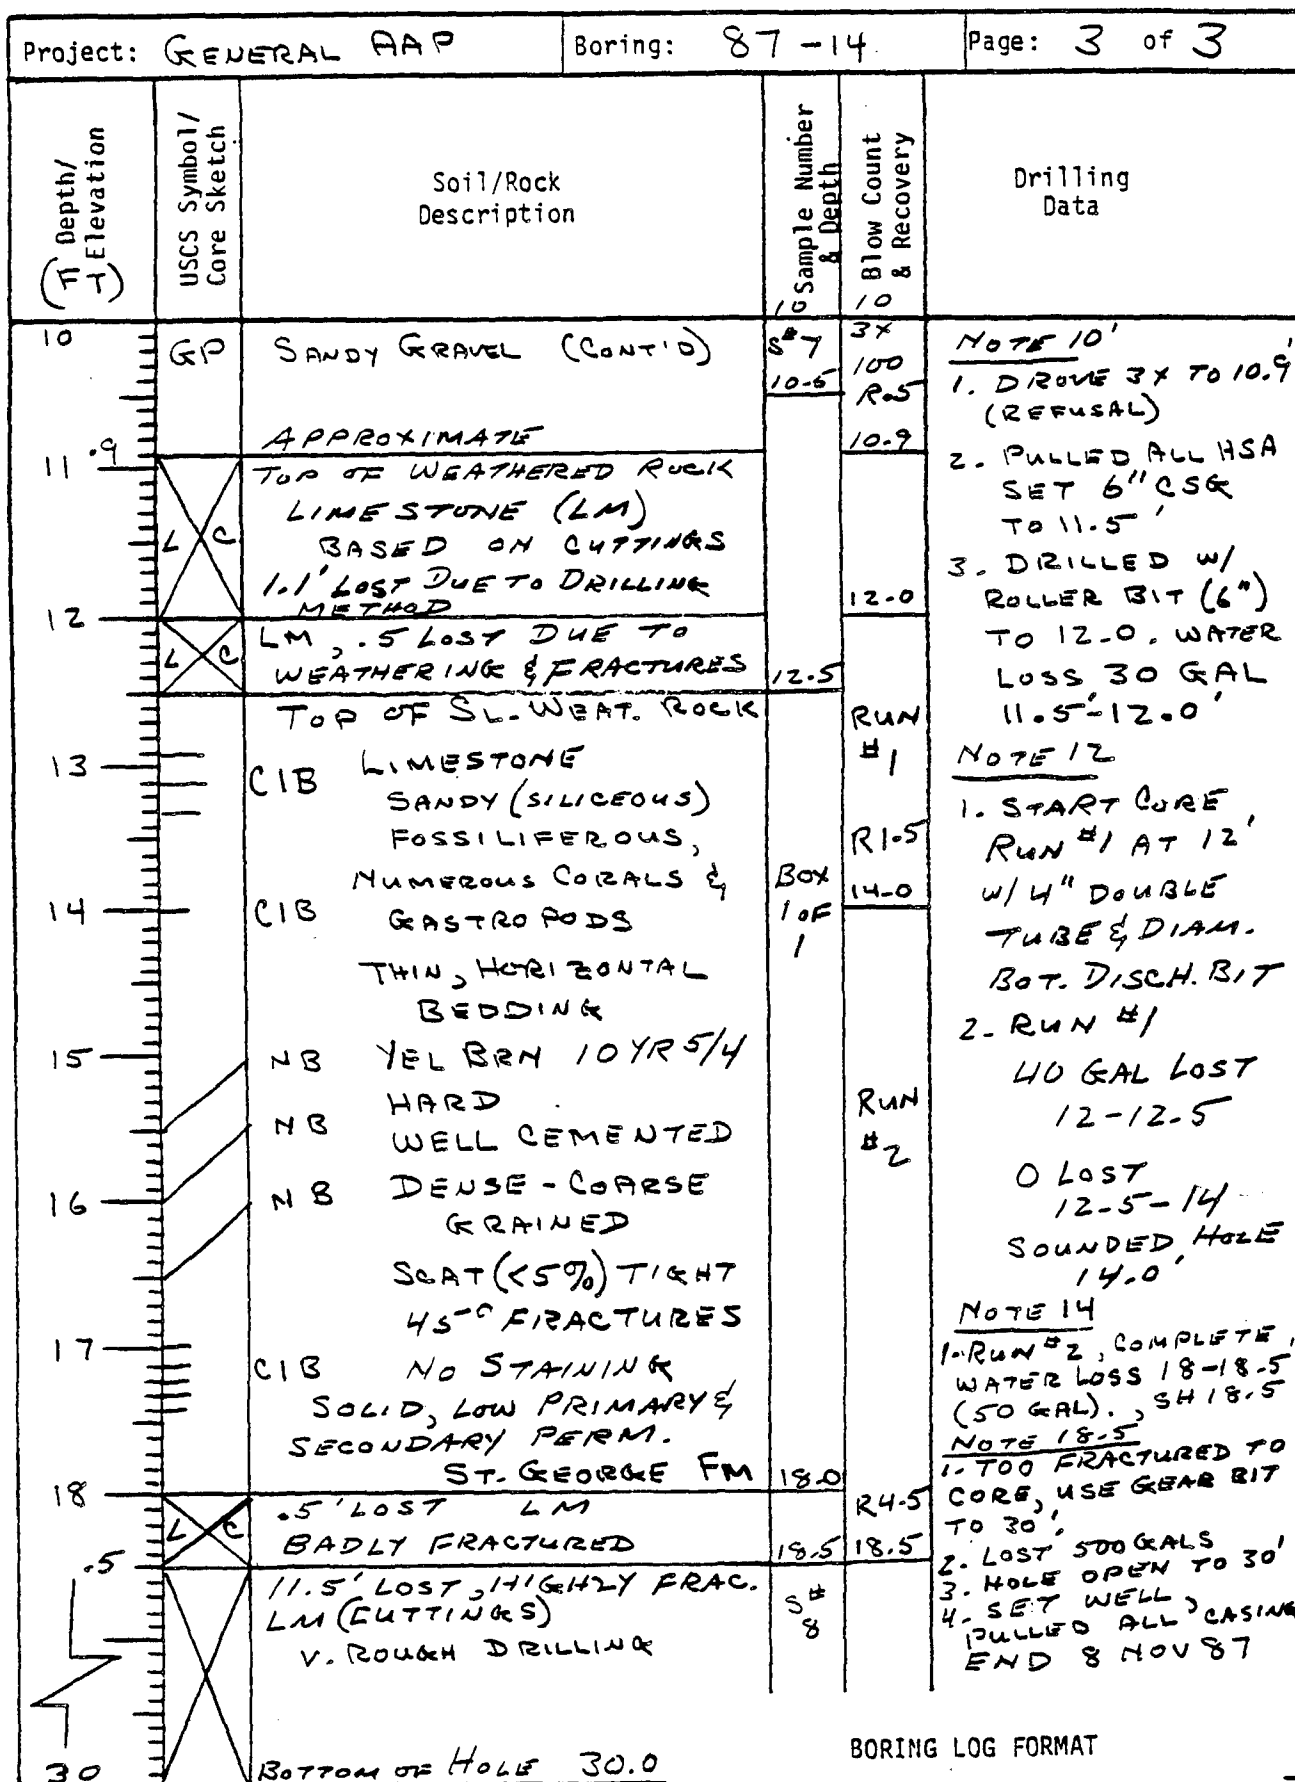 Project: GENERAL AAP Boring: 87-14 Page: 3 of 3
Depth/
Elevation
(FT)
USCS Symbol/
Core Sketch
Soil/Rock
Description
Sample Number
& Depth
10
Blow Count
& Recovery
10
Drilling
Data
10
GP
SANDY GRAVEL (CONT'D)
APPROXIMATE
.9
11
TOP OF WEATHERED ROCK
LIMESTONE (LM)
L C
BASED ON CUTTINGS
1.1' LOST DUE TO DRILLING
METHOD
12
LM, .5 LOST DUE TO
L C
WEATHERING & FRACTURES
TOP OF SL. WEAT. ROCK
13
CIB
LIMESTONE
SANDY (SILICEOUS)
FOSSILIFEROUS,
NUMEROUS CORALS &
14
CIB
GASTROPODS
THIN, HORIZONTAL
BEDDING
15
NB
YEL BRN 10YR5/4
HARD
NB
WELL CEMENTED
16
NB
DENSE-COARSE
GRAINED
SCAT (<5%) TIGHT
FRACTURES
17
CIB
NO STAINING
SOLID, LOW PRIMARY &
SECONDARY PERM.
ST. GEORGE FM
18
.5' LOST LM
L C
BADLY FRACTURED
.5
11.5' LOST, HIGHLY FRAC.
LM (CUTTINGS)
V. ROUGH DRILLING
30
BOTTOM OF HOLE 30.0
S#7
10.5
12.5
BOX
1 OF
1
18.0
18.5
S#
8
3X
100
R.5
10.9
12.0
RUN
#1
R1.5
14.0
RUN
#2
R4.5
18.5
NOTE 10'
1. DROVE 3X TO 10.9'
(REFUSAL)
2. PULLED ALL HSA
SET 6" CSG
TO 11.5'
3. DRILLED W/
ROLLER BIT (6")
TO 12.0. WATER
LOSS 30 GAL
11.5'-12.0'
NOTE 12
1. START CORE
RUN #1 AT 12'
W/ 4" DOUBLE
TUBE & DIAM.
BOT. DISCH. BIT
2. RUN #1
40 GAL LOST
12-12.5
0 LOST
12.5-14
SOUNDED HOLE
14.0'
NOTE 14
1. RUN #2, COMPLETE,
WATER LOSS 18-18.5
(50 GAL)., SH 18.5
NOTE 18.5
1. TOO FRACTURED TO
CORE, USE GEAR BIT
TO 30'.
2. LOST 500 GALS
3. HOLE OPEN TO 30'
4. SET WELL,
PULLED ALL CASING
END 8 NOV 87
BORING LOG FORMAT